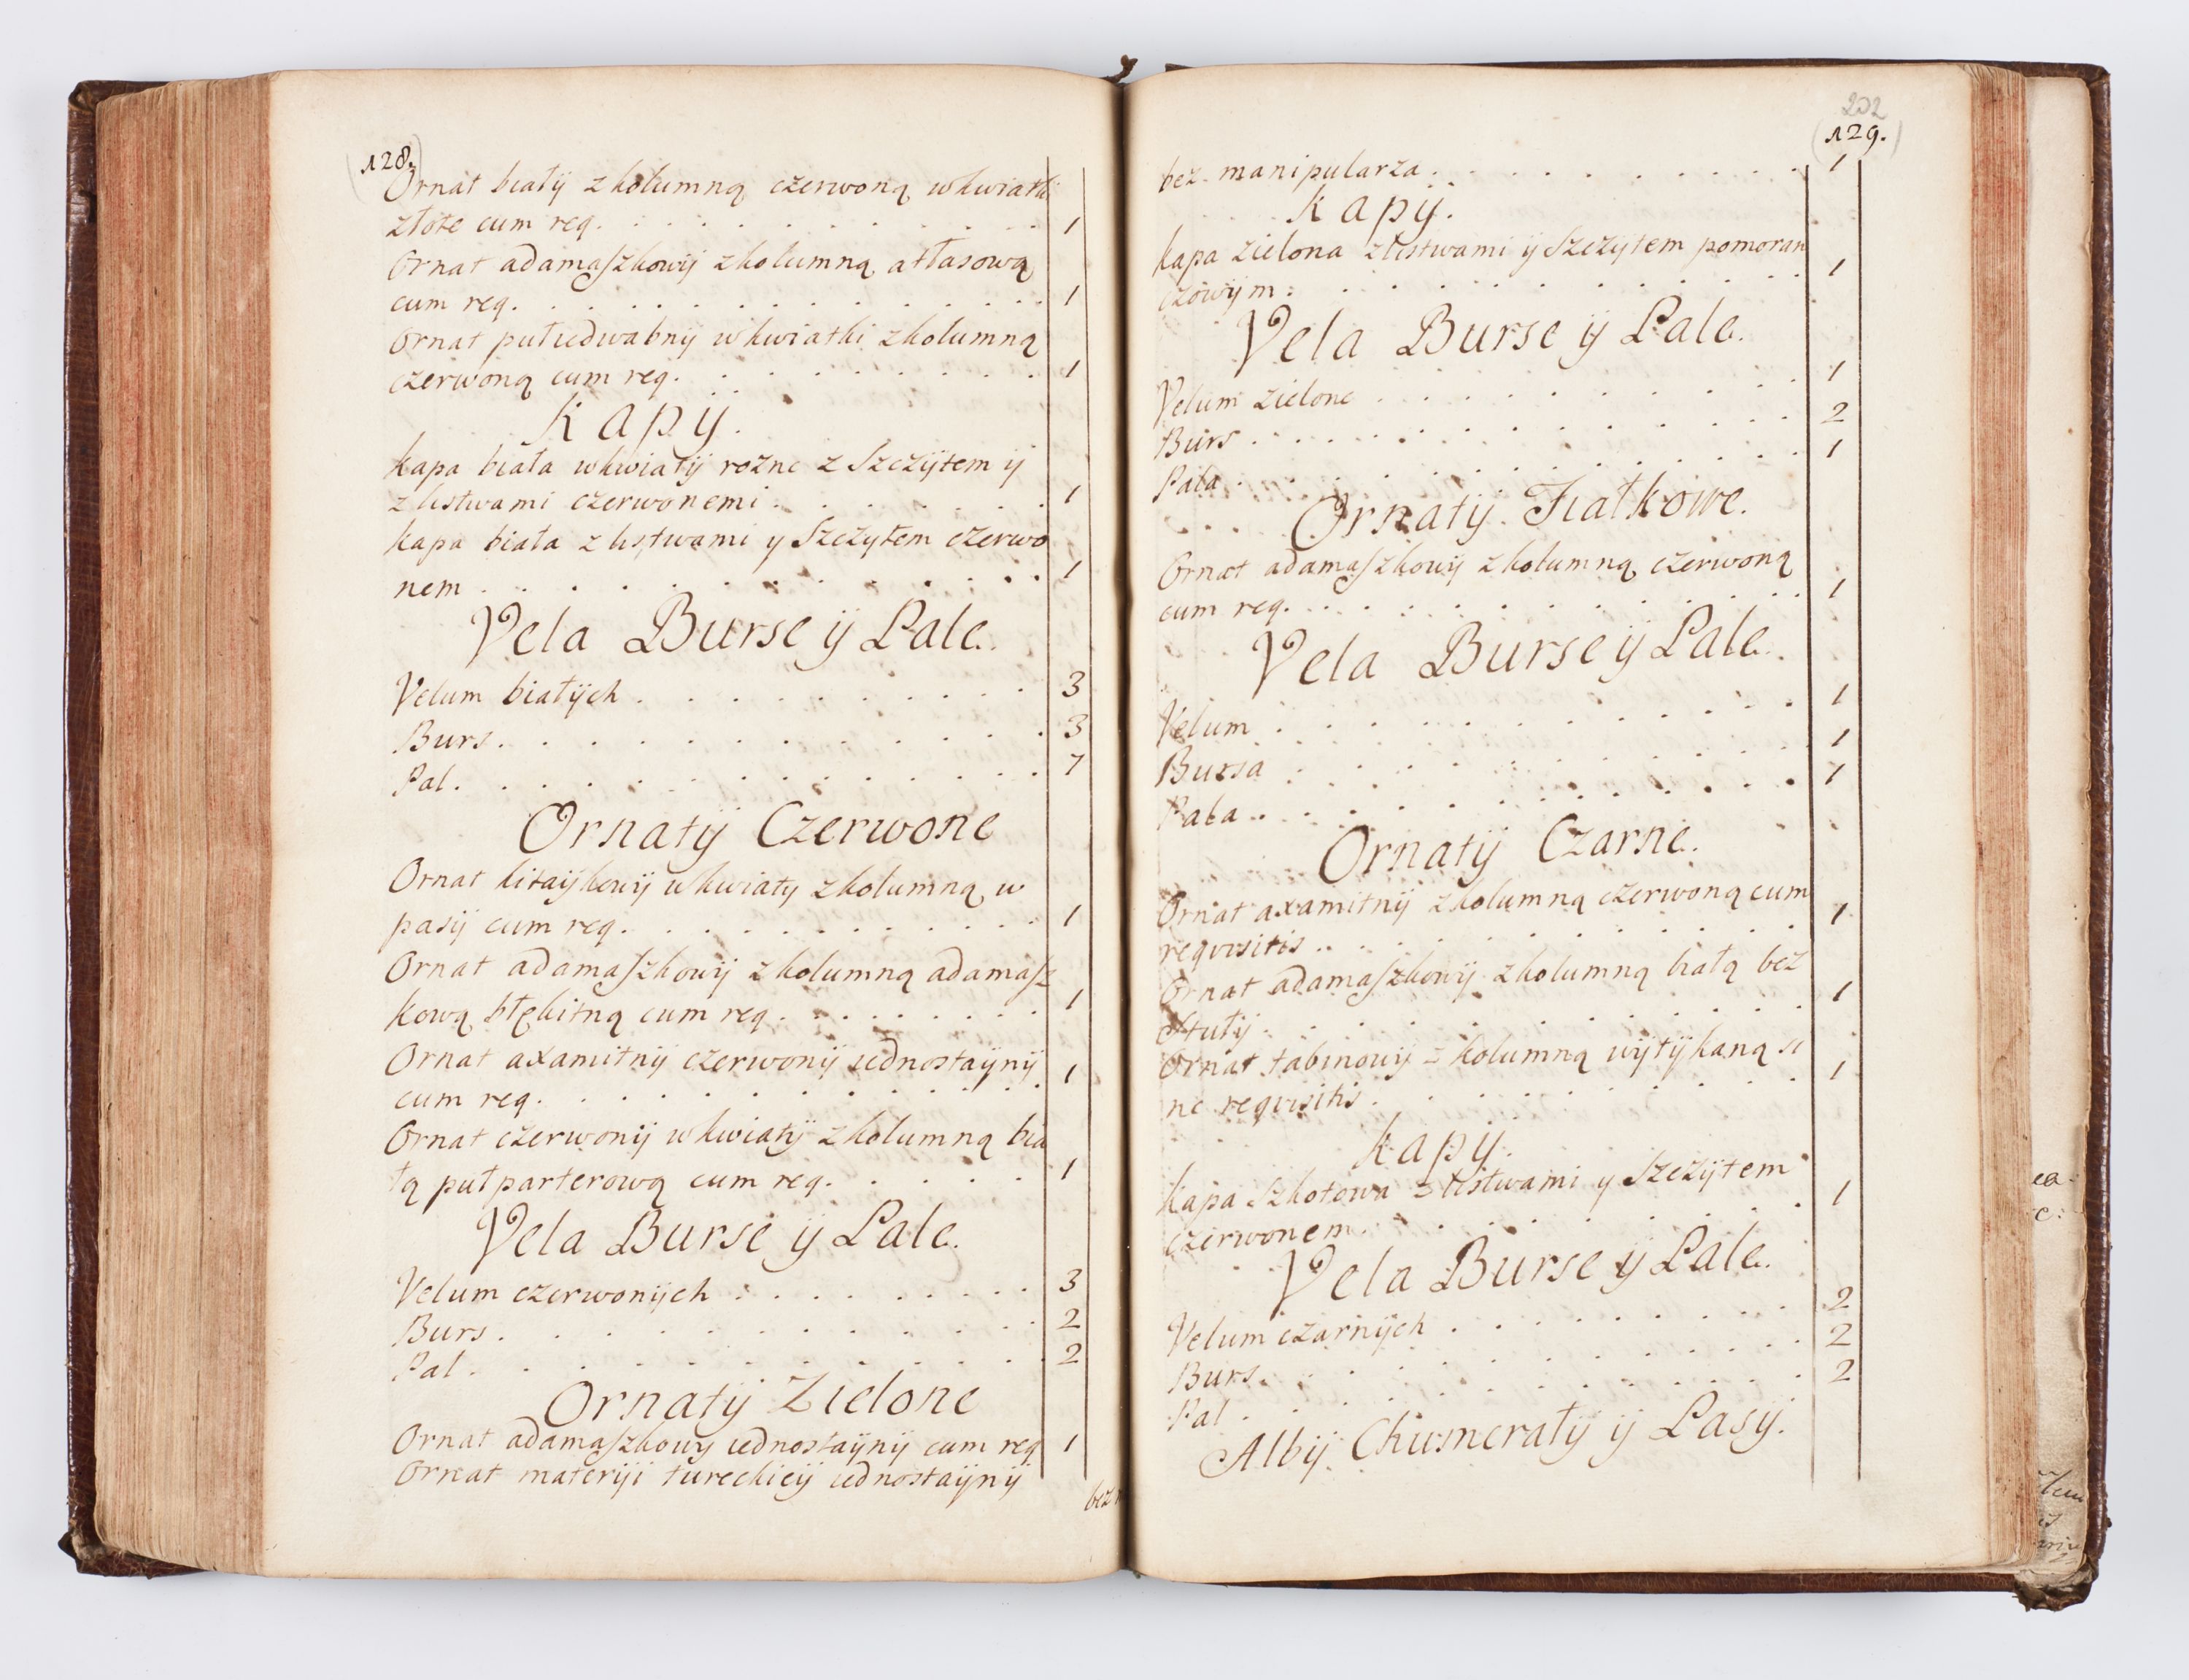 128.
Ornat białÿ z kolumną czerwoną w kwiatki
złote cum req. 1
Ornat adamaszkowÿ z kolumną atłasową
cum req. 1
Ornat pułiedwabnÿ w kwiatki z kolumną
czerwoną cum req. 1
Kapÿ.
Kapa biała w kwiatÿ rożne z Szczÿtem ÿ
z listwami czerwonemi. 1
Kapa biała z listwami y Szczytem czerwo
nem 1
Vela Burse ÿ Pale.
Velum białÿch 3
Burs. 3
Pal. 7
Ornatÿ Czerwone
Ornat kitaÿkowÿ w kwiaty z kolumną w
pasÿ cum req. 1
Ornat adamaszkowÿ z kolumną adamasz
kową błękitną cum req. 1
Ornat axamitnÿ czerwonÿ iednostaÿnÿ
cum req. 1
Ornat czerwonÿ w kwiatÿ z kolumną bia
łą pułparterową cum req. 1
Vela Burse ÿ Pale.
Velum czerwonÿch 3
Burs. 2
Pal. 2
Ornatÿ Zielone
Ornat adamaszkowy iednostaÿnÿ cum req 1
Ornat materÿi tureckieÿ iednostaÿnÿ
bez
202
129.
bez manipularza. 1
Kapÿ.
Kapa zielona z listwami ÿ Szczÿtem pomoran
czowÿm. 1
Vela Burse ÿ Pale.
Velum zielone 1
Burs 2
Pala 1
Ornatÿ Fiałkowe.
Ornat adamaszkowÿ z kolumną czerwoną
cum req. 1
Vela Burse ÿ Pale.
Velum 1
Bursa 1
Pala 1
Ornatÿ Czarne.
Ornat axamitnÿ z kolumną czerwoną cum
reqvisitis 1
Ornat adamaszkowÿ z kolumną białą bez
Stułÿ. 1
Ornat tabinowÿ z kolumną wÿtÿkaną si
ne reqvisitis. 1
Kapÿ.
Kapa Szkotowa z listwami y Szczÿtem
czerwonem. 1
Vela Burse ÿ Pale.
Velum czarnÿch 2
Burs. 2
Pal 2
Albÿ Chumerałÿ ÿ Pasÿ.